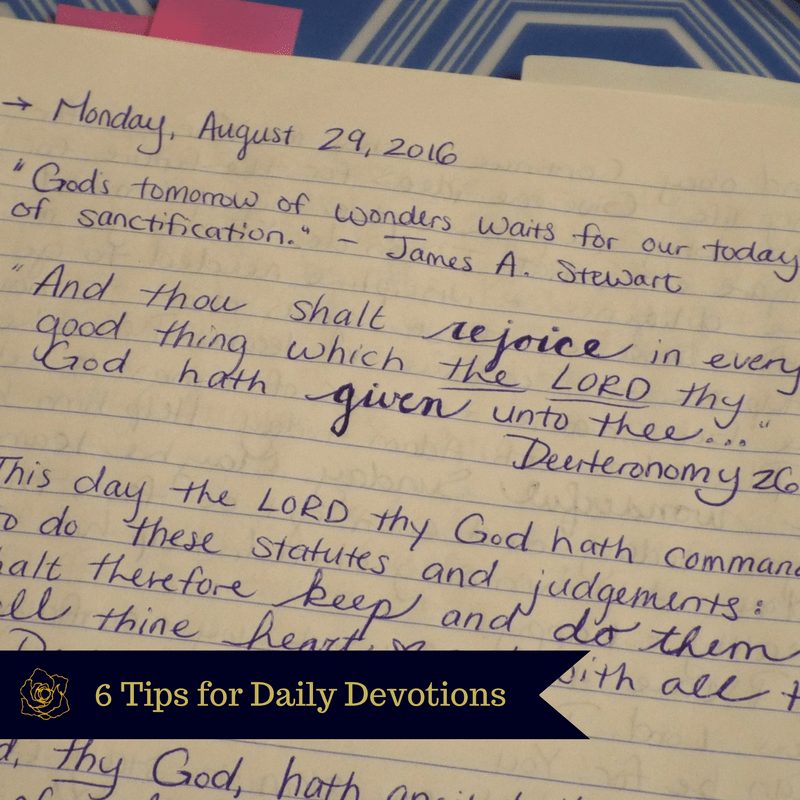 → Monday, August 29, 2016
"God's tomorrow of wonders waits for our today
of sanctification." – James A. Stewart
"And thou shalt rejoice in every
good thing which the LORD thy
God hath given unto thee..."
Deuteronomy 26
This day the LORD thy God hath
to do these statutes and judgements:
therefore keep and do them
thine heart
with all
6 Tips for Daily Devotions
thy God, hath